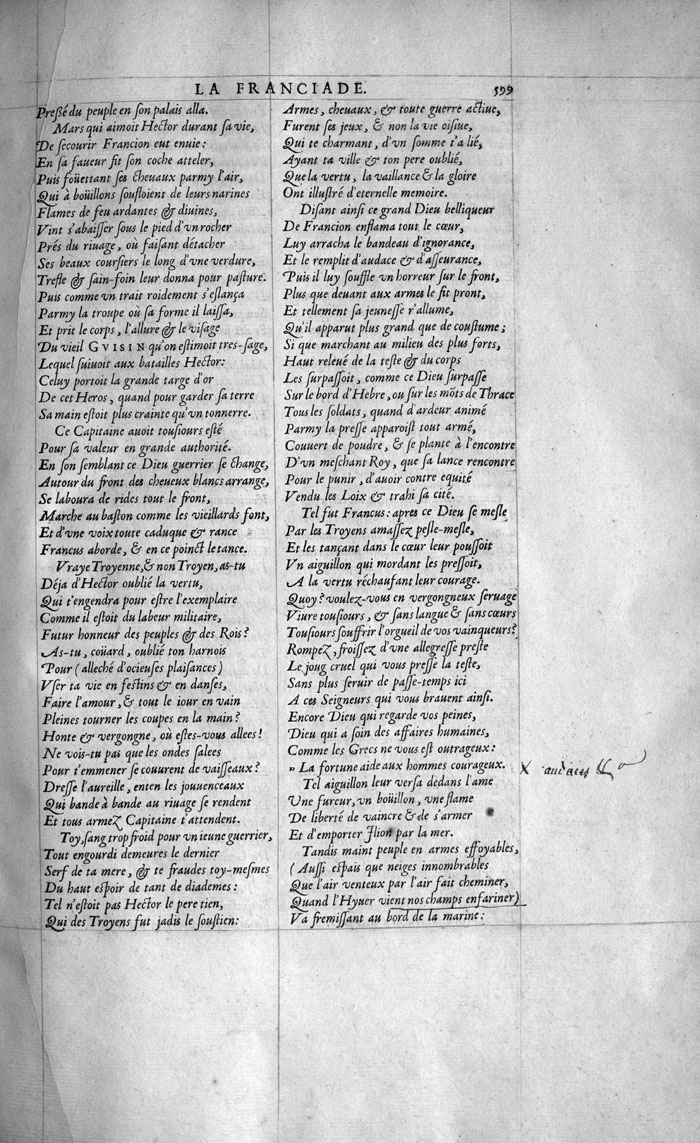 LA FRANCIADE. 599
Preßé du peuple en son palais alla.
Mars qui aimoit Hector durant sa vie,
De secourir Francion eut enuie:
En sa faueur fit son coche atteler,
Puis foüettant ses cheuaux parmy l'air,
Qui à boüillons soufloient de leurs narines
Flames de feu ardantes & diuines,
Vint s'abaisser sous le pied d'vn rocher
Prés du riuage, où faisant détacher
Ses beaux coursiers le long d'vne verdure,
Trefle & sain-foin leur donna pour pasture.
Puis comme vn trait roidement s'eslança
Parmy la troupe où sa forme il laissa,
Et prit le corps, l'allure & le visage
Du vieil GVISIN qu'on estimoit tres-sage,
Lequel suiuoit aux batailles Hector:
Celuy portoit la grande targe d'or
De cet Heros, quand pour garder sa terre
Sa main estoit plus crainte qu'vn tonnerre.
Ce Capitaine auoit tousiours esté
Pour sa valeur en grande authorité.
En son semblant ce Dieu guerrier se change,
Autour du front des cheueux blancs arrange,
Se laboura de rides tout le front,
Marche au baston comme les vieillards font,
Et d'vne voix toute caduque & rance
Francus aborde, & en ce poinct le tance.
Vraye Troyenne, & non Troyen, as-tu
Déja d'Hector oublié la vertu,
Qui t'engendra pour estre l'exemplaire
Comme il estoit du labeur militaire,
Futur honneur des peuples & des Rois?
As-tu, coüard, oublié ton harnois
Pour (alleché d'ocieuses plaisances)
Vser ta vie en festins & en danses,
Faire l'amour, & tout le iour en vain
Pleines tourner les coupes en la main?
Honte & vergongne, où estes-vous allees!
Ne vois-tu pas que les ondes salees
Pour t'emmener se couurent de vaisseaux?
Dresse l'aureille, enten les jouuenceaux
Qui bande à bande au riuage se rendent
Et tous armez Capitaine t'attendent.
Toy, sang trop froid pour vn ieune guerrier,
Tout engourdi demeures le dernier
Serf de ta mere, & te fraudes toy-mesmes
Du haut espoir de tant de diademes:
Tel n'estoit pas Hector le pere tien,
Qui des Troyens fut jadis le soustien:
Armes, cheuaux, & toute guerre actiue,
Furent ses jeux, & non la vie oisiue,
Qui te charmant, d'vn somme t'a lié,
Ayant ta ville & ton pere oublié,
Que la vertu, la vaillance & la gloire
Ont illustré d'eternelle memoire.
Disant ainsi ce grand Dieu belliqueur
De Francion enflama tout le cœur,
Luy arracha le bandeau d'ignorance,
Et le remplit d'audace & d'asseurance,
Puis il luy souffle vn horreur sur le front,
Plus que deuant aux armes le fit pront,
Et tellement sa jeunesse r'allume,
Qu'il apparut plus grand que de coustume;
Si que marchant au milieu des plus forts,
Haut releué de la teste & du corps
Les surpassoit, comme ce Dieu surpasse
Sur le bord d'Hebre, ou sur les mõts de Thrace
Tous les soldats, quand d'ardeur animé
Parmy la presse apparoist tout armé,
Couuert de poudre, & se plante à l'encontre
D'vn meschant Roy, que sa lance rencontre
Pour le punir, d'auoir contre equité
Vendu les Loix & trahi sa cité.
Tel fut Francus: apres ce Dieu se mesle
Par les Troyens amassez pesle-mesle,
Et les tançant dans le cœur leur poussoit
Vn aiguillon qui mordant les pressoit,
A la vertu réchaufant leur courage.
Quoy? voulez-vous en vergongneux seruage
Viure tousiours, & sans langue & sans cœurs
Tousiours souffrir l'orgueil de vos vainqueurs?
Rompez, froissez d'vne allegresse preste
Le joug cruel qui vous presse la teste,
Sans plus seruir de passe-temps ici
A ces Seigneurs qui vous brauent ainsi.
Encore Dieu qui regarde vos peines,
Dieu qui a soin des affaires humaines,
Comme les Grecs ne vous est outrageux:
» La fortune aide aux hommes courageux. X audaces
Tel aiguillon leur versa dedans l'ame
Vne fureur, vn boüillon, vne flame
De liberté de vaincre & de s'armer
Et d'emporter Ilion par la mer.
Tandis maint peuple en armes effoyables,
(Aussi espais que neiges innombrables
Que l'air venteux par l'air fait cheminer,
Quand l'Hyuer vient nos champs enfariner)
Va fremissant au bord de la marine: